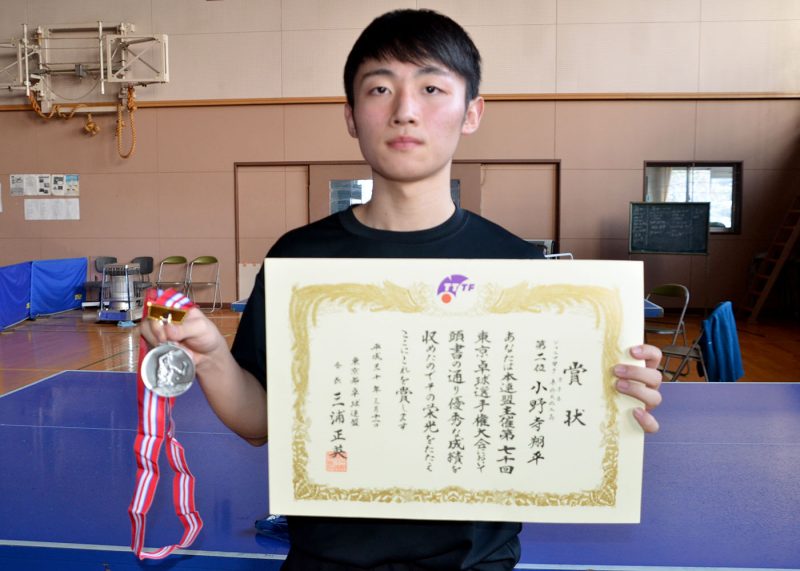 TTTF
賞状
ジュニア男子
第二位 小野寺翔平
あなたは本連盟主催第七十回
東京卓球選手権大会において
頭書の通り優秀な成績を
収めたのでその栄光をたたえ
ここにこれを賞します
東京都卓球連盟
会長 三浦正英